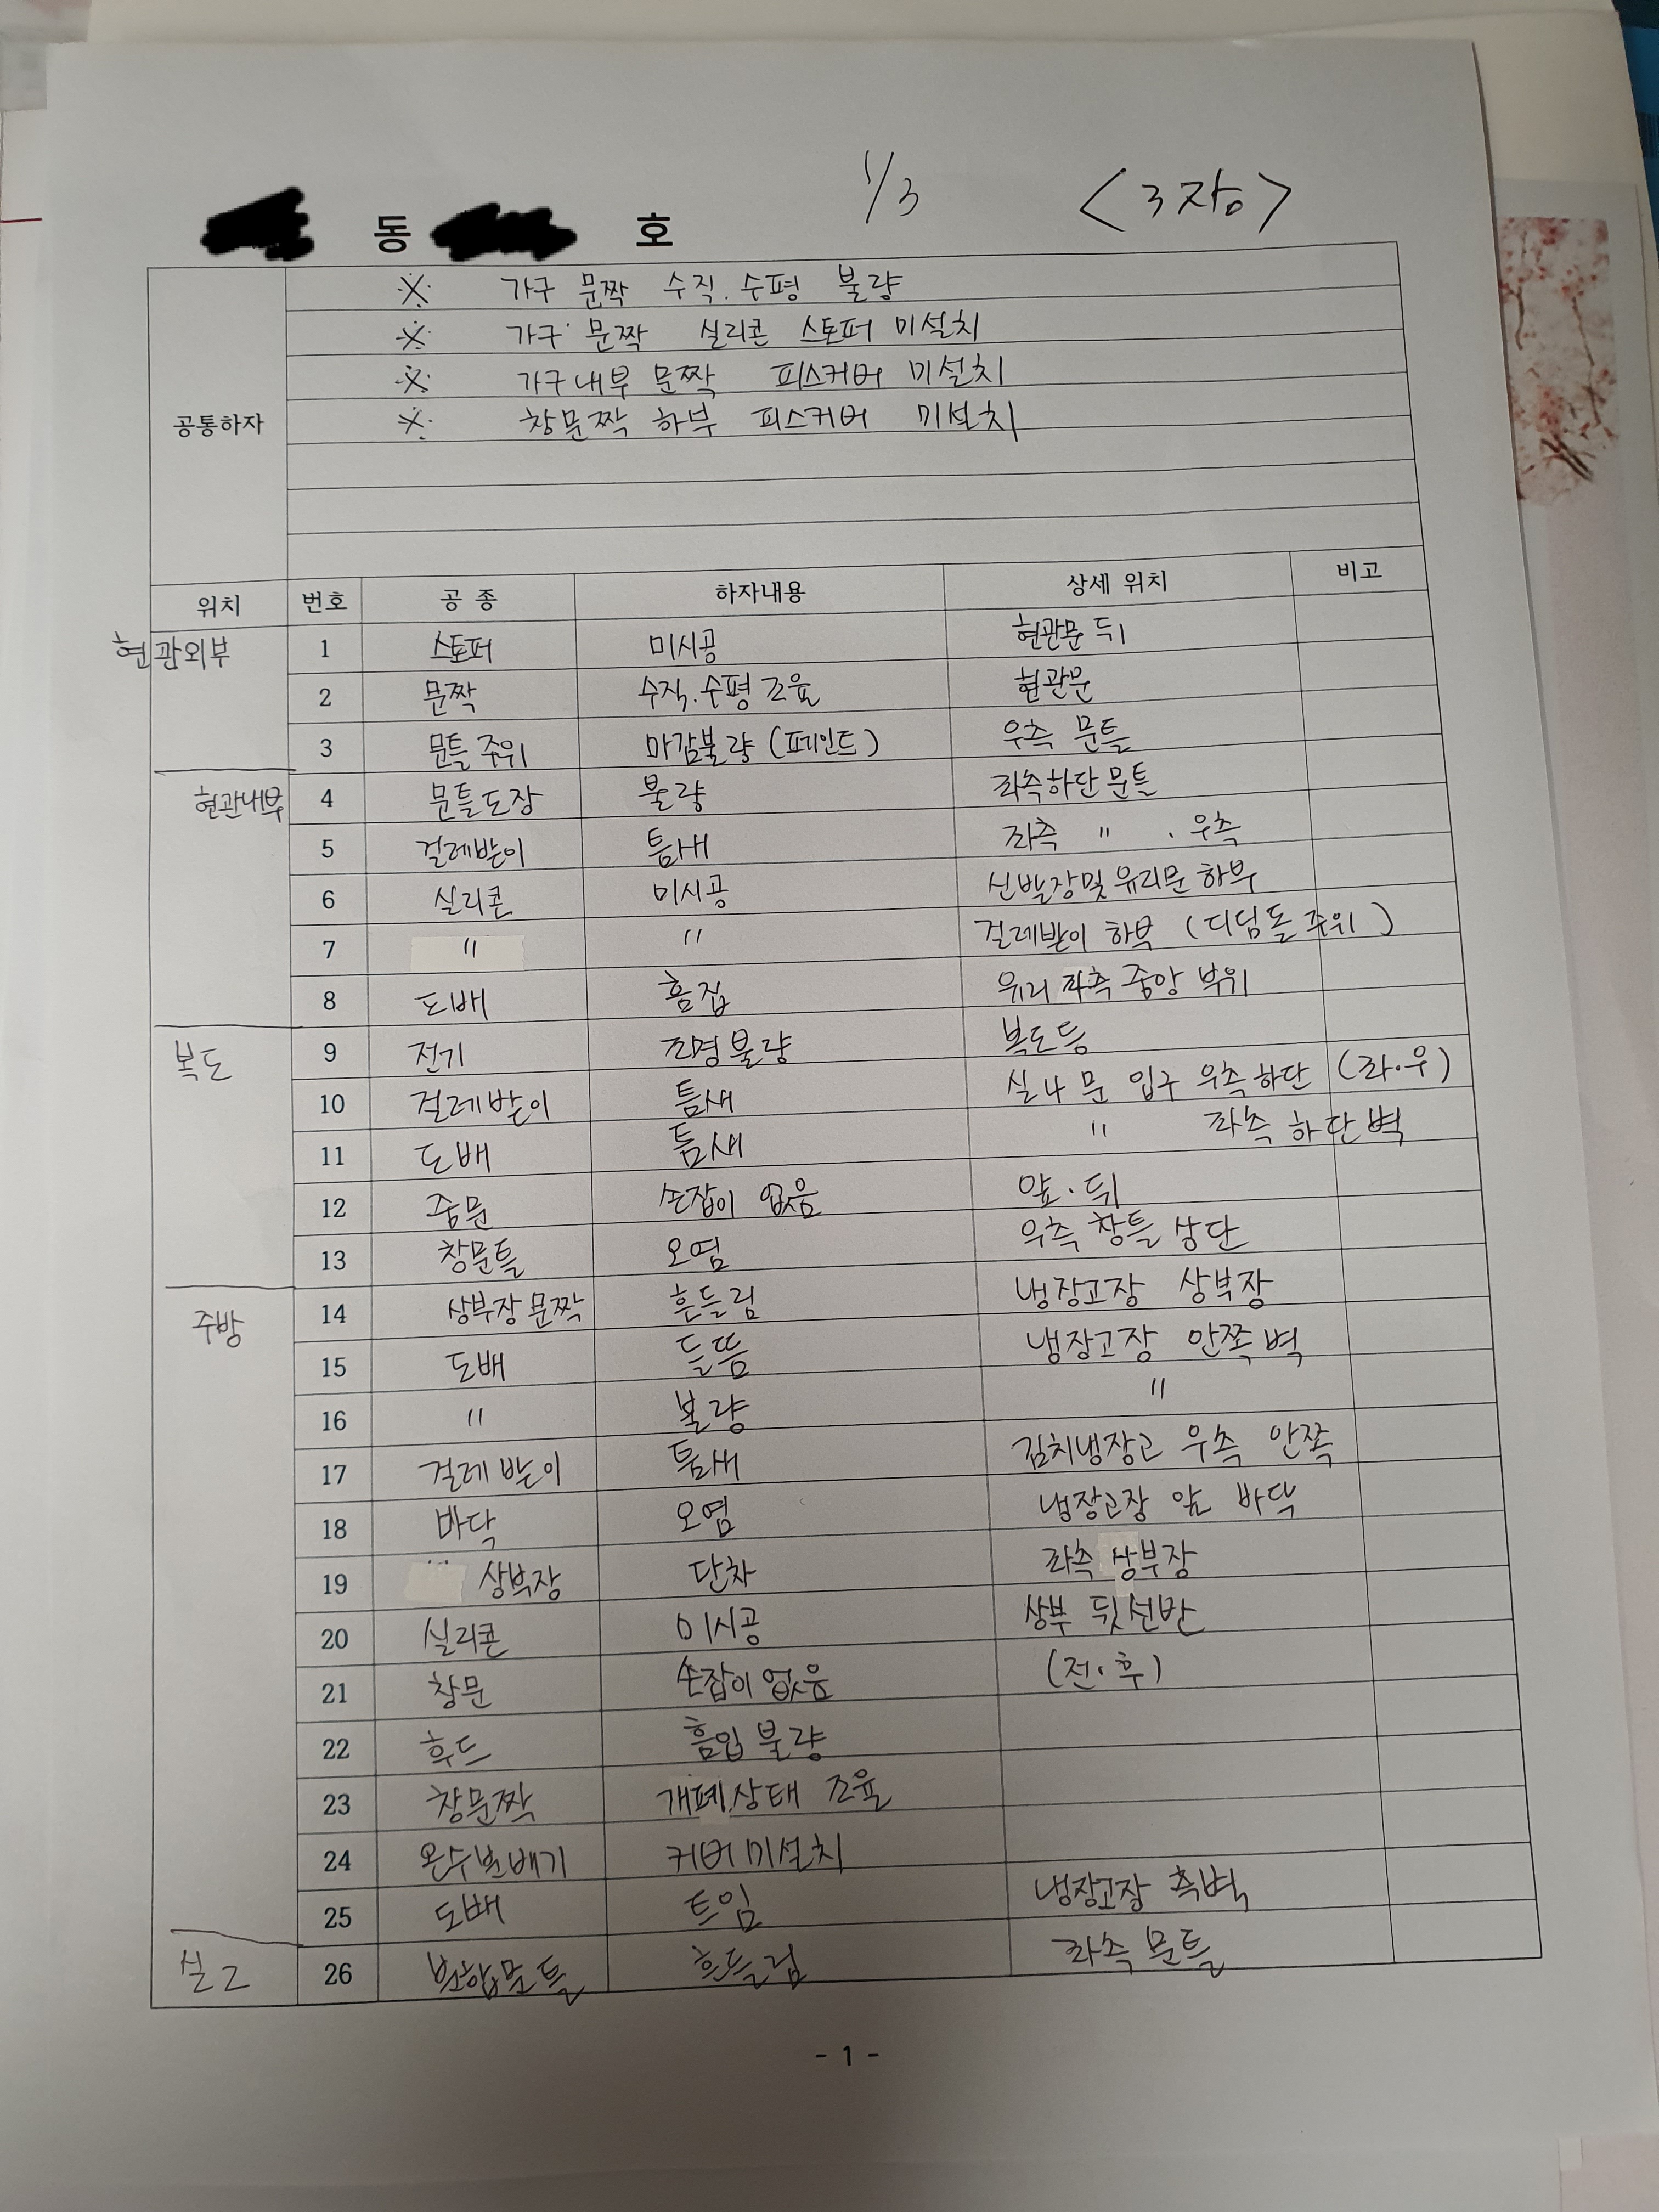 1/3 <3장>
동 호
공통하자
※ 가구 문짝 수직.수평 불량
※ 가구 문짝 실리콘 스토퍼 미설치
※ 가구내부 문짝 피스커버 미설치
※ 창문짝 하부 피스커버 미설치
위치 번호 공 종 하자내용 상세 위치 비고
현관외부 1 스토퍼 미시공 현관문 뒤
2 문짝 수직.수평 조율 현관문
3 문틀 주위 마감불량 (페인트) 우측 문틀
현관내부 4 문틀도장 불량 좌측하단 문틀
5 걸레받이 틈새 좌측 〃 . 우측
6 실리콘 미시공 신발장및 유리문 하부
7 〃 〃 걸레받이 하부 (디딤돌 주위)
8 도배 흠집 유리 좌측 중앙 부위
복도 9 전기 조명불량 복도등
10 걸레받이 틈새 실 4 문 입구 우측하단 (좌.우)
11 도배 틈새 〃 좌측 하단벽
12 중문 손잡이 없음 앞.뒤
13 창문틀 오염 우측 창틀 상단
주방 14 상부장 문짝 흔들림 냉장고장 상부장
15 도배 들뜸 냉장고장 안쪽벽
16 〃 불량 〃
17 걸레받이 틈새 김치냉장고 우측 안쪽
18 바닥 오염 냉장고장 앞 바닥
19 상부장 단차 좌측 상부장
20 실리콘 미시공 상부 뒷선반
21 창문 손잡이 없음 (전.후)
22 후드 흡입불량
23 창문짝 개폐상태 조율
24 온수분배기 커버미설치
25 도배 트임 냉장고장 측벽
실2 26 분합문틀 흔들림 좌측 문틀
- 1 -